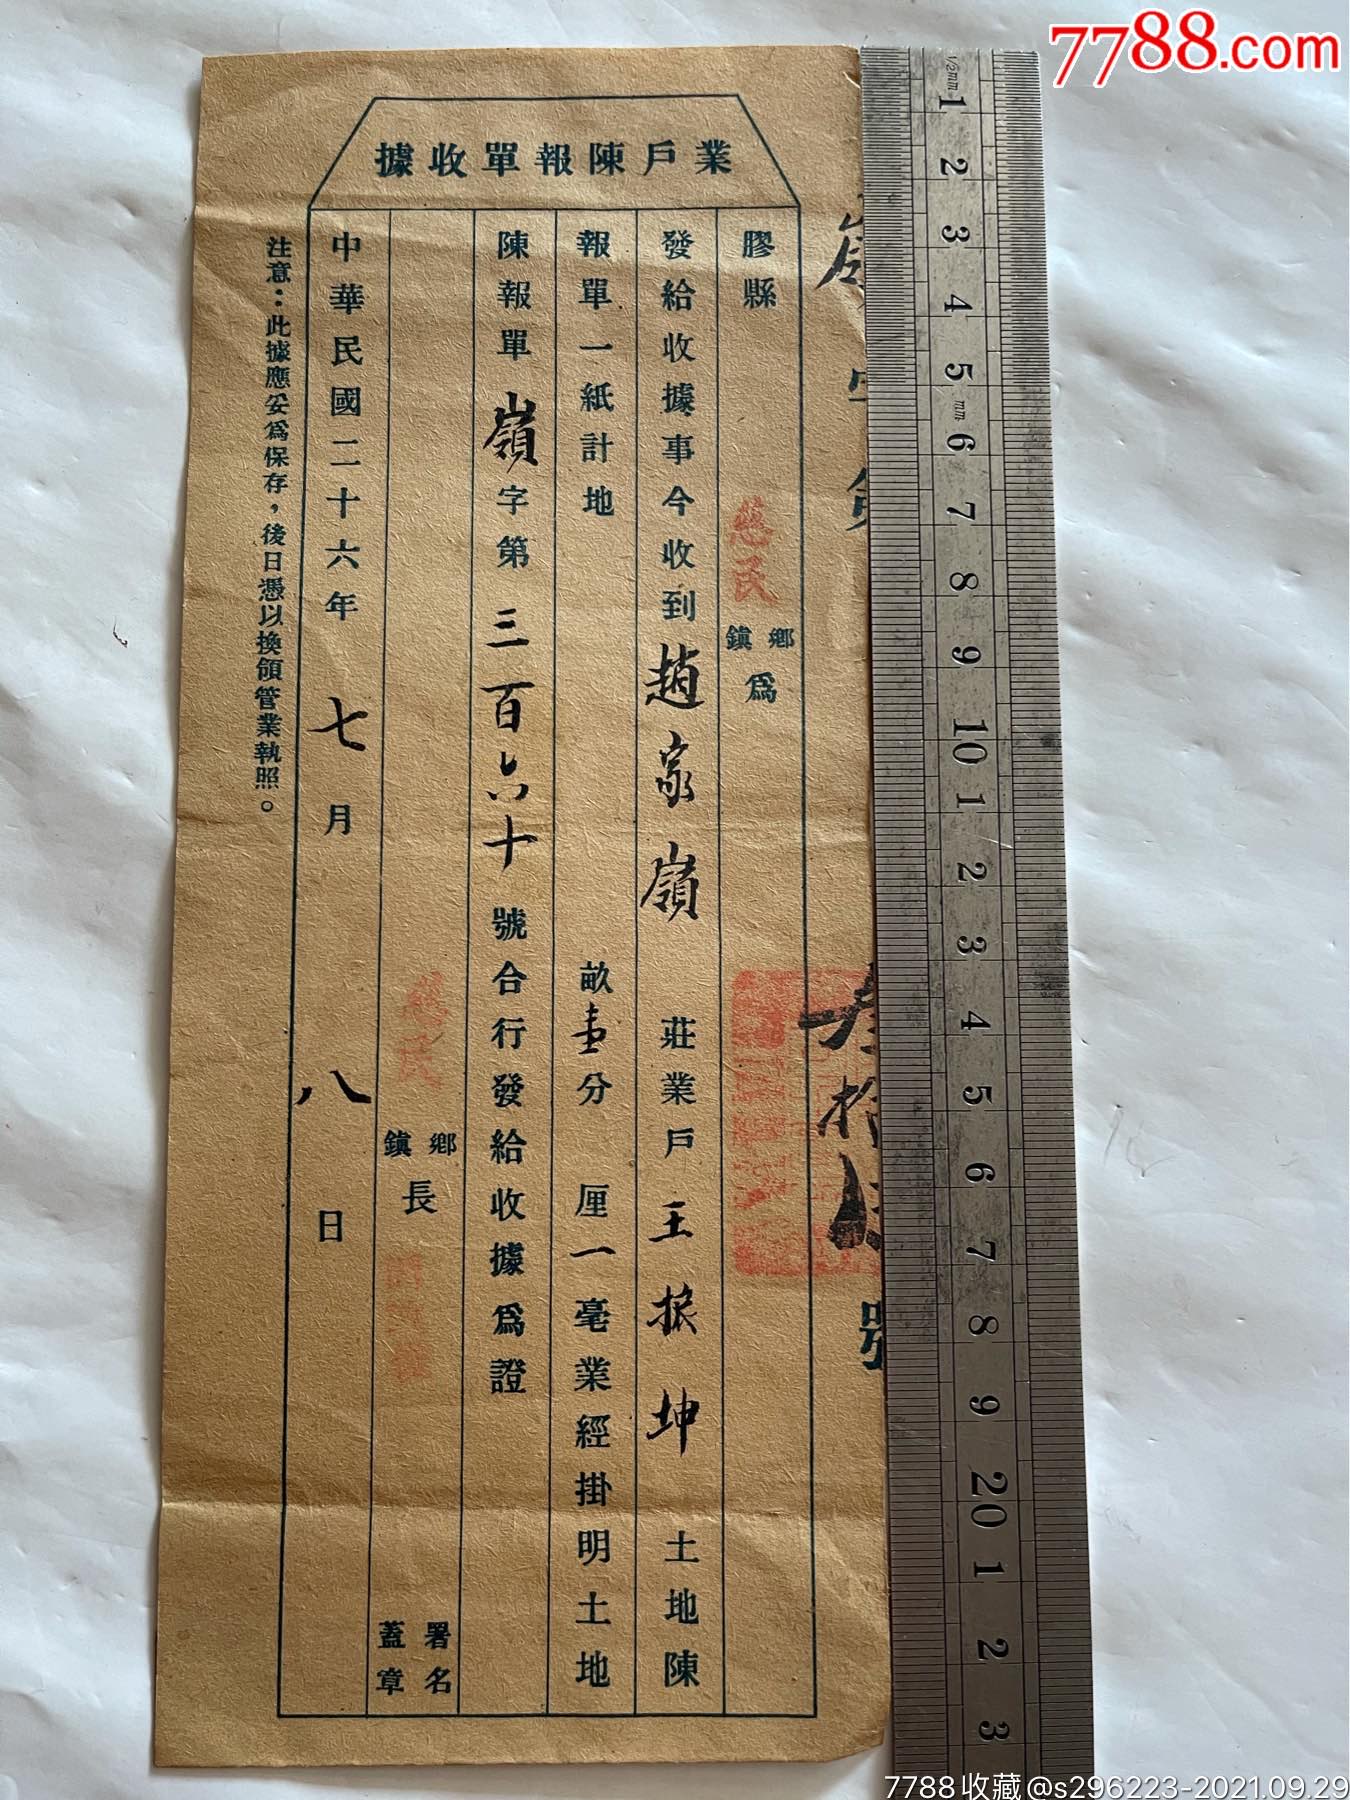 7788.com
業戶陳報單收據
膠縣 慈民 鄉鎮為
發給收據事今收到趙家嶺莊業戶王振坤土地陳
報單一紙計地 畝壹分 厘一毫業經掛明土地
陳報單嶺字第三百六十號合行發給收據爲證
慈民 鄉鎮長 署名蓋章
中華民國二十六年七月八日
注意：此據應妥爲保存，後日憑以換領管業執照。
1/2mm 1 2 3 4 5 mm 6 7 8 9 10 1 2 3 4 5 6 7 8 9 20 1 2 3
7788收藏@s296223-2021.09.29